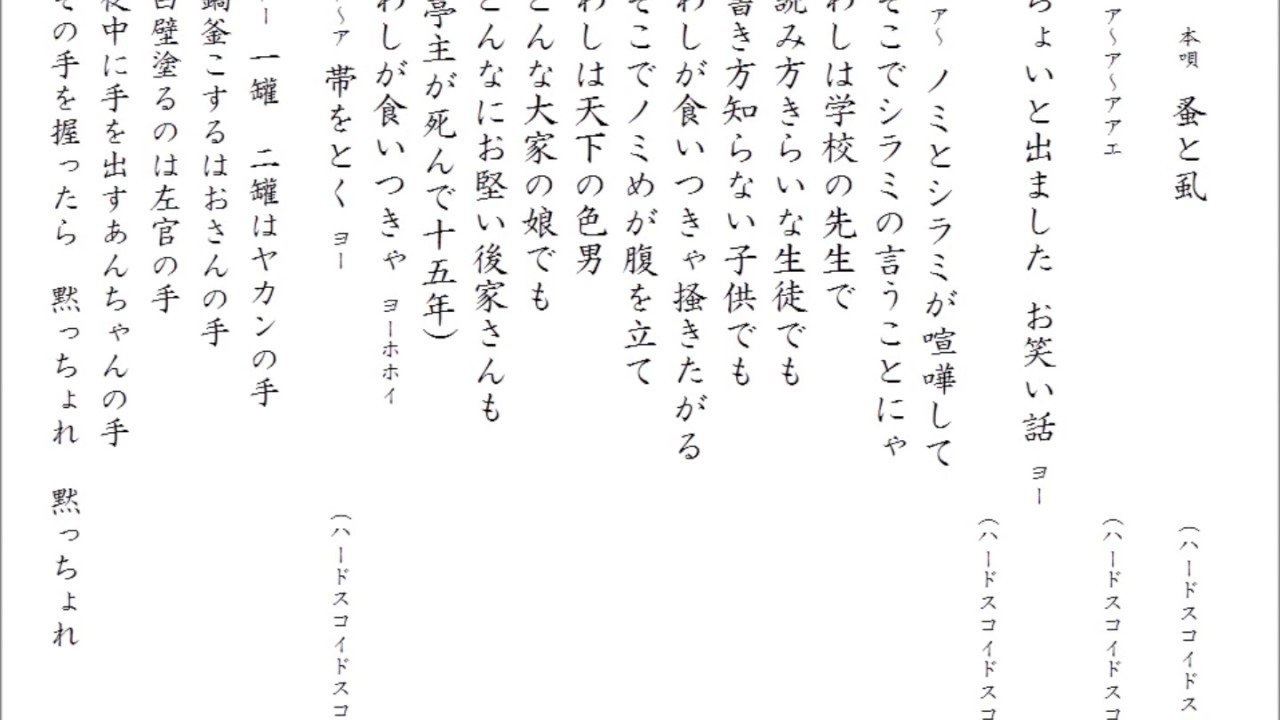 本唄 蚤と虱 (ハードスコイドス
ア〜ア〜アアエ (ハードスコイドスコ
ちょいと出ました お笑い話 ヨー
(ハードスコイドスコ
ア〜 ノミとシラミが喧嘩して
そこでシラミの言うことにゃ
わしは学校の先生で
読み方きらいな生徒でも
書き方知らない子供でも
わしが食いつきゃ掻きたがる
そこでノミめが腹を立て
わしは天下の色男
どんな大家の娘でも
どんなにお堅い後家さんも
亭主が死んで十五年)
わしが食いつきゃ ヨーホホイ
〜ア 帯をとく ヨー (ハードスコイドスコ
ー 一罐 二罐はヤカンの手
鍋釜こするはおさんの手
白壁塗るのは左官の手
夜中に手を出すあんちゃんの手
その手を握ったら 黙っちょれ 黙っちょれ